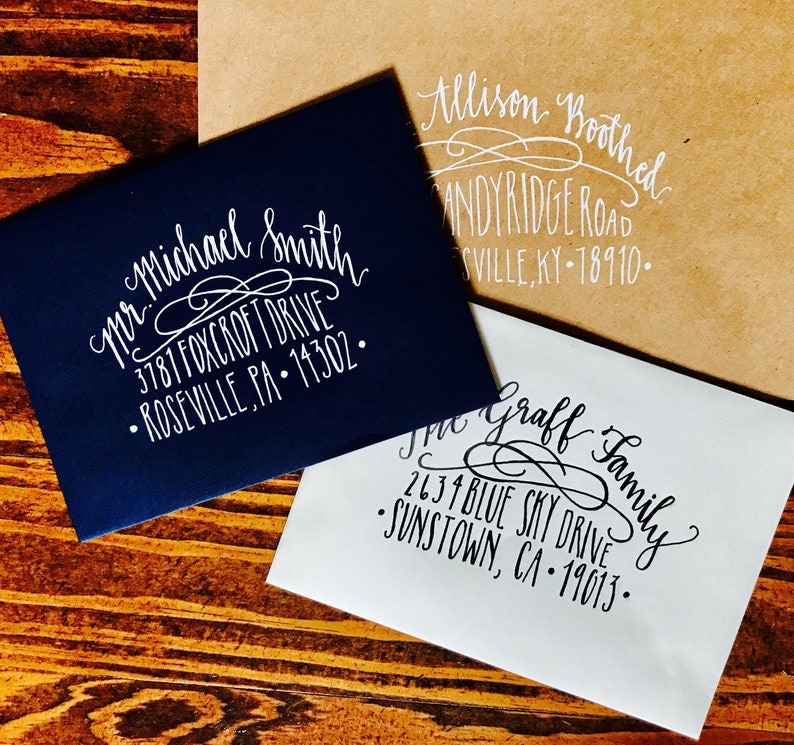 Allison Boothed
ROAD
KY • 78910 •
Mr. Michael Smith
3781 FOXCROFT DRIVE
• ROSEVILLE, PA • 14302 •
The Graff Family
2634 BLUE SKY DRIVE
• SUNSTOWN, CA • 19013 •